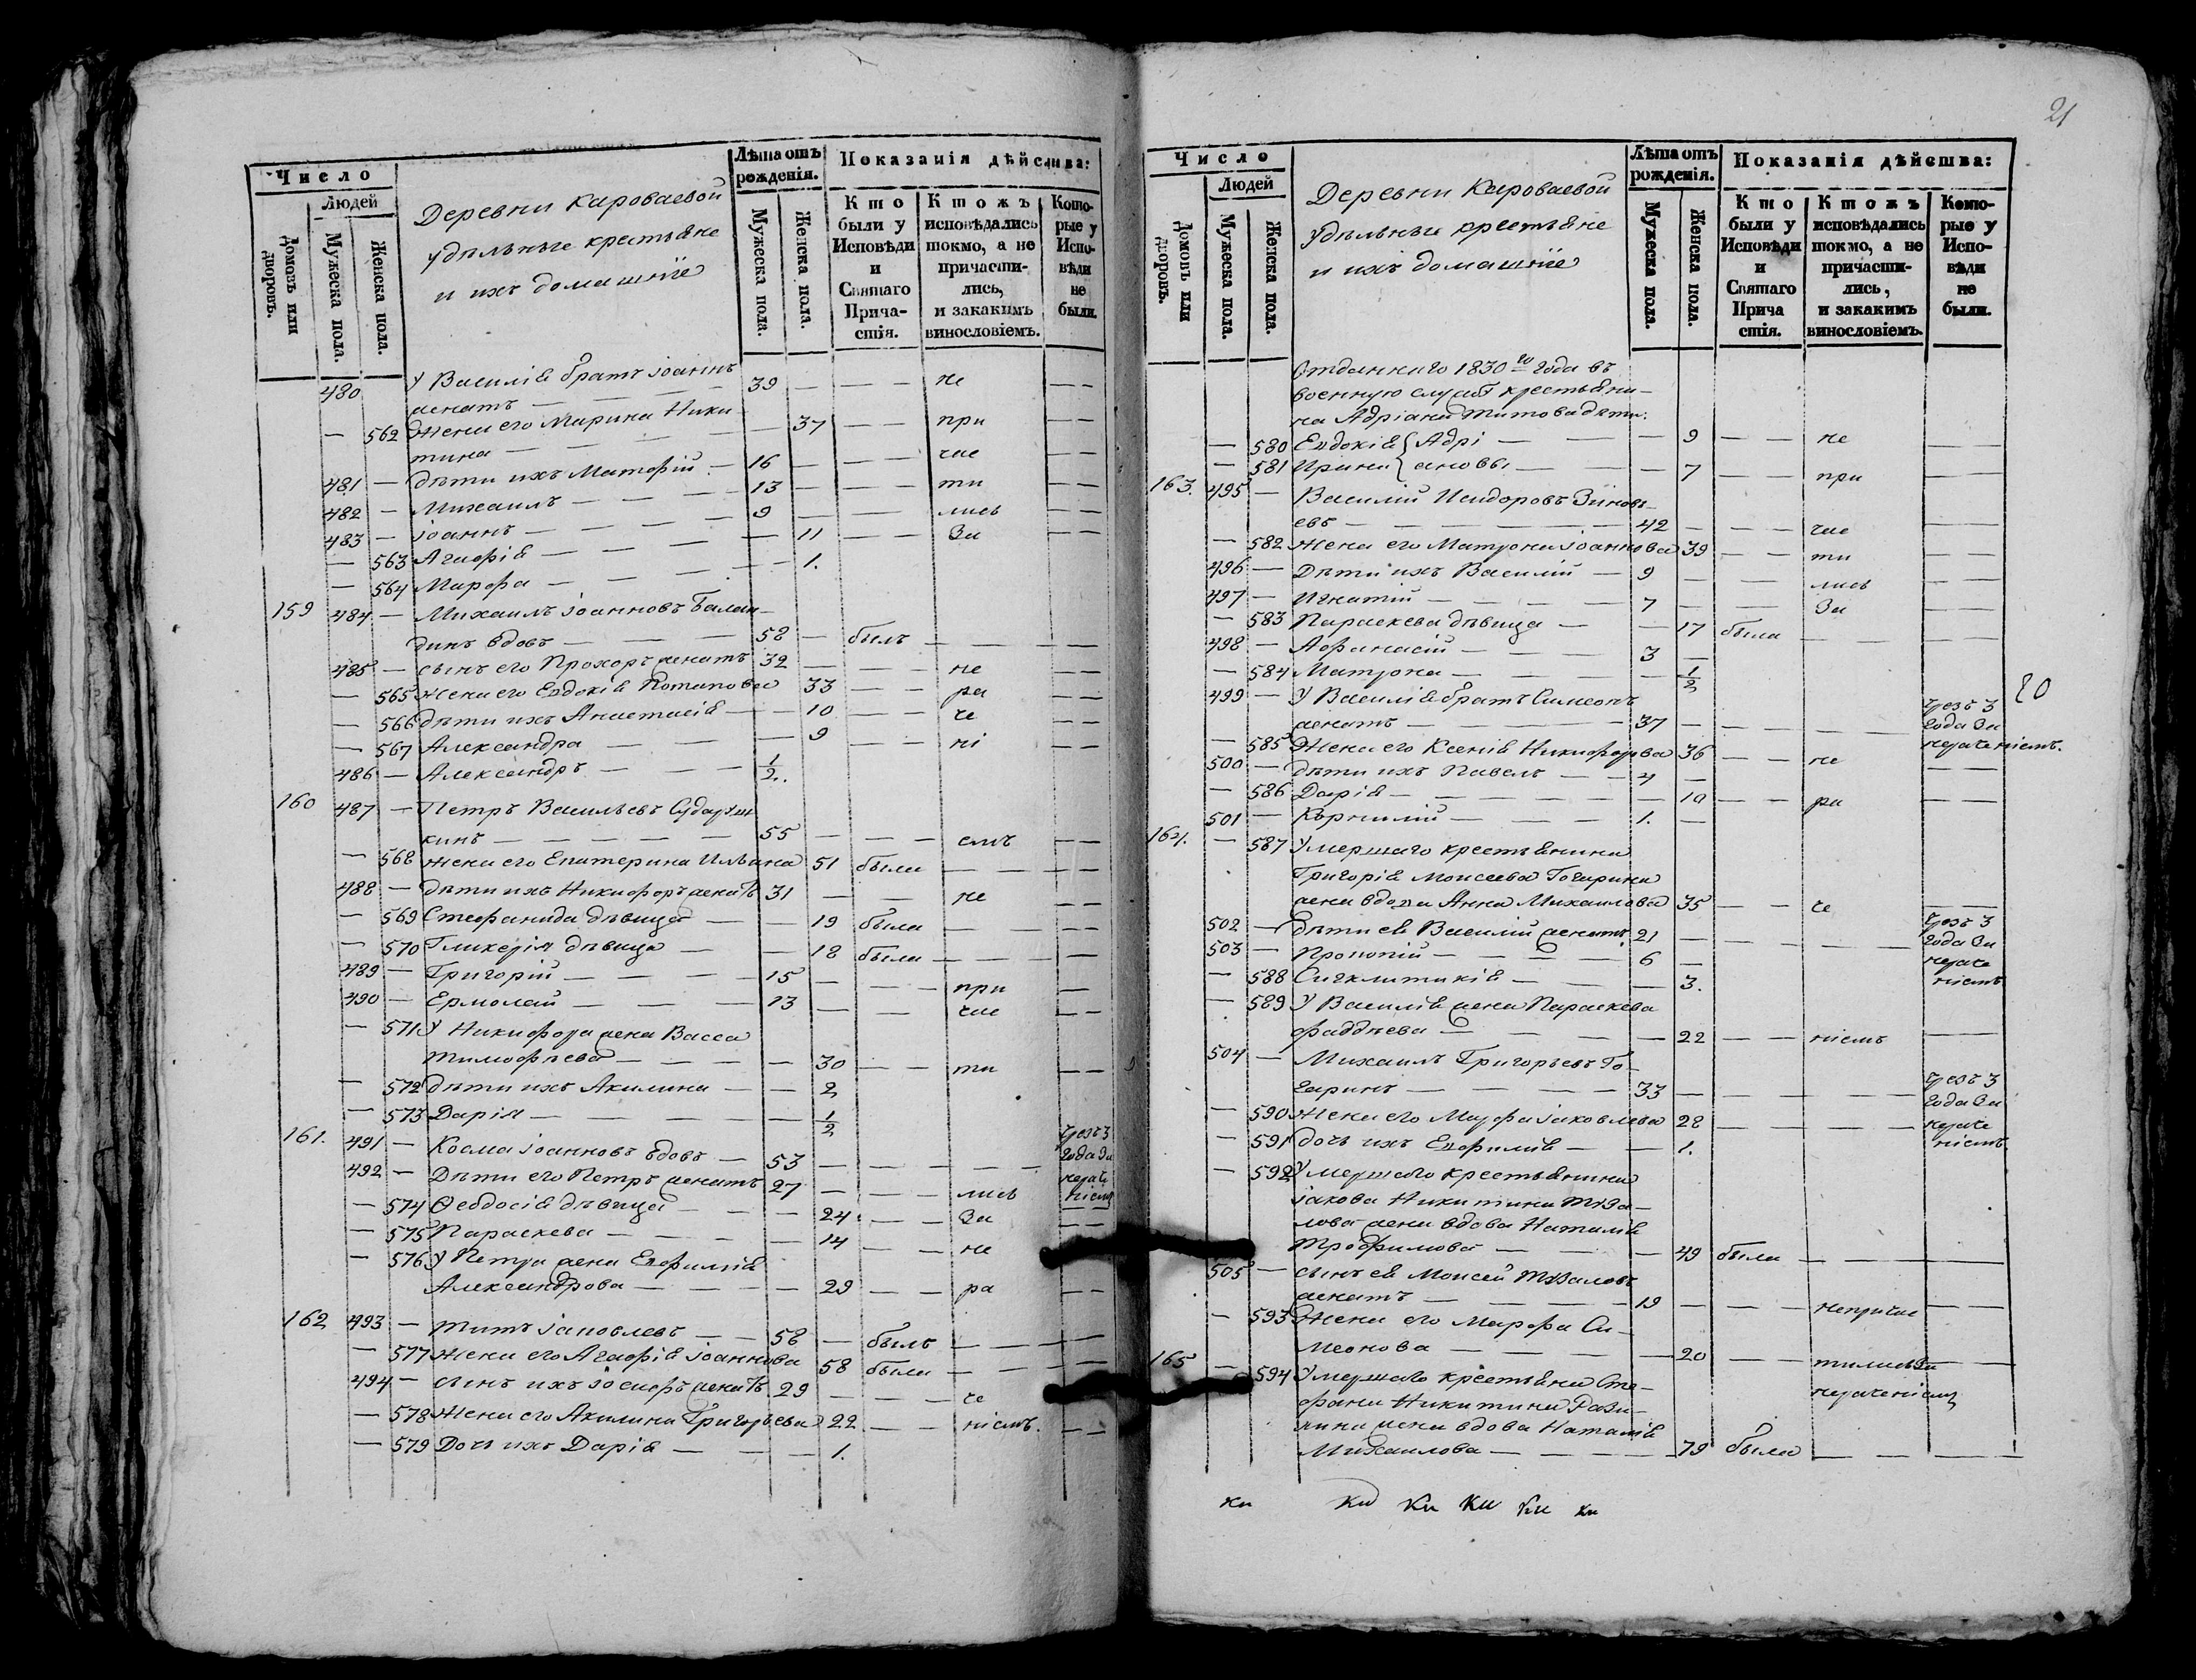 21
Число
Людей
Домовъ или дворовъ.
Мужеска пола.
Женска пола.
Деревни Караваевой
удѣльные крестьяне
и ихъ домашніе
Лѣта отъ рожденія.
Мужеска пола.
Женска пола.
Показанія дѣйства:
Кто были у Исповѣди и Святаго Прича-стія.
Ктожъ исповѣдались токмо, а не причасти-лись, и закакимъ винословіемъ.
Кото-рые у Испо-вѣди не были.
480 У Василія братъ Іоаннъ
женатъ — 39 — — — не — —
— 562 Жена его Марина Ники
тина — — 37 — — при — —
481 — дѣти ихъ Матѳій — 16 — — — час — —
482 — Михаилъ — 13 — — — ти — —
483 — Іоаннъ — 9 — — — лись — —
— 563 Агафія — — 11 — — За — —
— 564 Марфа — — 1.
159 484 — Михаилъ Іоанновъ Балан-
динъ вдовъ — 58 — былъ — — —
485 — сынъ его Прохоръ женатъ 32 — — — не — —
— 565 Жена его Евдокія Потапова 33 — — ра — —
— 566 дѣти ихъ Анастасія — — 10 — — че — —
— 567 Александра — — 9 — — ні — —
486 — Александръ — 1/2.
160 487 — Петръ Васильевъ Сударуш
кинъ — 55 — — — емъ — —
— 568 жена его Екатерина Ильина 51 была — — —
488 — дѣти ихъ Никифоръ женатъ 31 — — не — —
— 569 Стефанида дѣвица — — 19 была — — —
— 570 Гликерія дѣвица — — 18 была — — —
489 — Григорій — 15 — — — при —
490 — Ермолай — 13 — — — час — —
— 571 У Никифора жена Васса
Тимофѣева — — 30 — — ти — —
— 572 дѣти ихъ Акилина — — 2
— 573 Дарія — — 1/2
161. 491 — Косма Іоанновъ вдовъ — 53 — — — — чрезъ 3
года За
нераче
ніемъ
492 — Дѣти его Петръ женатъ 27 — — — лись
— 574 Ѳеодосія дѣвица — — 24 — — За — —
— 575 Параскева — — 14 — — не
— 576 У Петра жена Евфимія
Александрова — — 29 — — ра — —
162 493 — Титъ Іаковлевъ — 58 — былъ — — —
— 577 жена его Агафія Іоаннова 58 была — — —
494 — сынъ ихъ Іосифъ женатъ 29 — — — че
— 578 Жена его Акилина Григорьева 22 — — ніемъ. — —
— 579 Дочь ихъ Дарія — — 1.
Число
Людей
Домовъ или дворовъ.
Мужеска пола.
Женска пола.
Деревни Караваевой
удѣльные крестьяне
и ихъ домашніе
Лѣта отъ рожденія.
Мужеска пола.
Женска пола.
Показанія дѣйства:
Кто были у Исповѣди и Святаго Прича стія.
Ктожъ исповѣдались токмо, а не причасти-лись, и закакимъ винословіемъ.
Кото-рые у Испо-вѣди не были.
Отданнаго 1830го года въ
военную службу крестьяни-
на Адріана Титова дѣти:
— 580 Евдокія { Адрі — — 9 — — не —
— 581 Ирина } ановы — — 7 — — при —
163. 495 — Василій Исидоровъ Зиновь-
евъ — 42 — — — час —
— 582 Жена его Матрона Іоаннова 39 — — ти —
496 — Дѣти ихъ Василій — 9 — — — лись — —
497 — Игнатій — 7 — — — За —
— 583 Параскева дѣвица — — 17 была — — —
498 — Афанасій — 3 —
— 584 Матрона — — 1/2
499 — У Василія братъ Симеонъ
женатъ — 37 — — — — чрезъ 3
года За
нераченіемъ.
20
— 585 Жена его Ксенія Никифорова 36 — — не —
500 — дѣти ихъ Павелъ — 4 —
— 586 Дарія — — 10 — — ра — —
501 — Корнилій — 1. —
164. — 587 Умершаго крестьянина
Григорія Моисеева Гагарина
жена вдова Анна Михаилова 35 — — че —
502 — дѣти ея Василій женатъ 21 — — — — чрезъ 3
года За
нераче
ніемъ
503 — Прокопій — 6 —
— 588 Сигклитикія — — 3.
— 589 У Василія жена Параскева
Фаддѣева — — 22 — — ніемъ —
504 — Михаилъ Григорьевъ Га-
гаринъ — 33 — — — — чрезъ 3
года За
нераче
ніемъ
— 590 Жена его Марфа Іаковлева 28 — — —
— 591 дочь ихъ Евфимія — — 1.
— 592 Умершаго крестьянина
Іакова Никитина
жена вдова Наталія
Трофимова — — 49 была — — —
505 — сынъ ея Моисей
женатъ — 19 — — — неприча — —
— 593 Жена его Марфа Си-
меонова — — 20 — — тились За — —
нераченіемъ
165 — 594 Умершаго крестьянина Сте-
фана Никитина
жена вдова Наталія
Михаилова — — 79 была — — —
ки ки ки ки ки ки